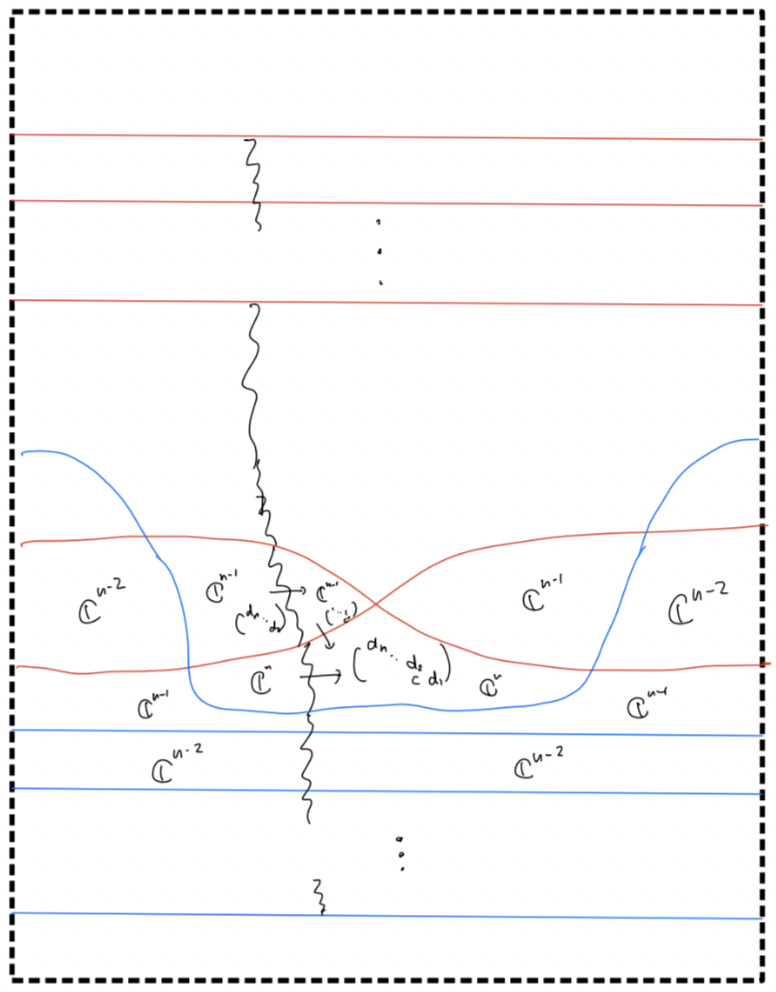 ℂⁿ⁻² ℂⁿ⁻¹ → ℂⁿ⁻¹ ℂⁿ⁻¹ ℂⁿ⁻²
(dₙ... d₂)
ℂⁿ → (dₙ... d₂ c d₁) ℂⁿ
ℂⁿ⁻¹ ℂⁿ⁻¹
ℂⁿ⁻² ℂⁿ⁻²